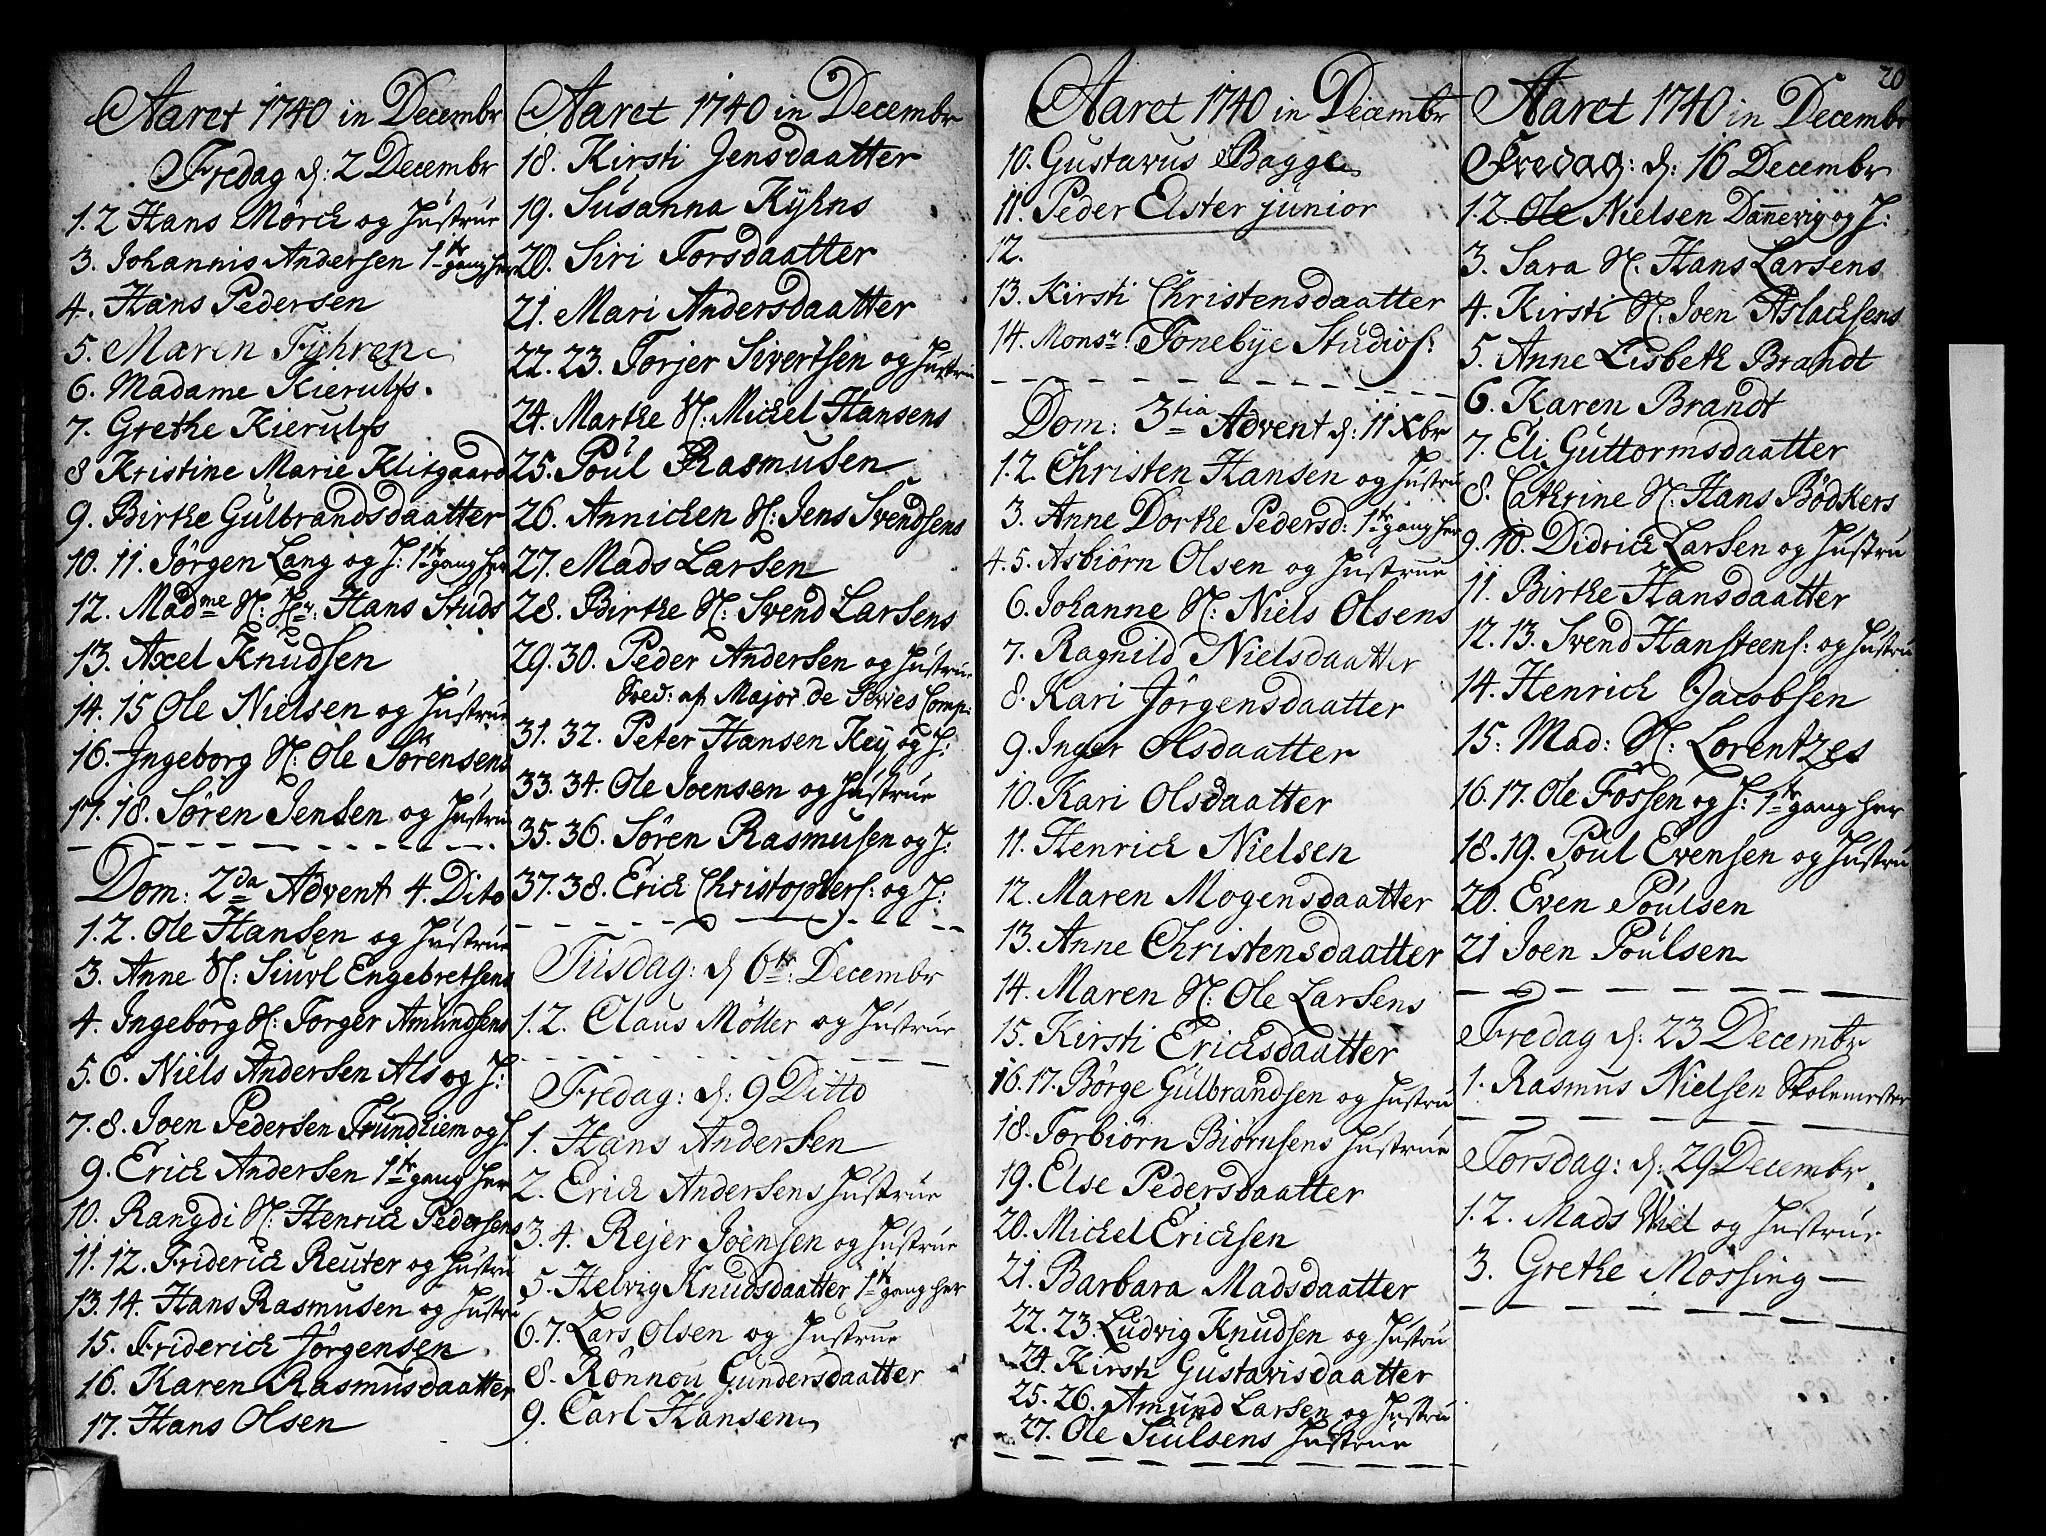 Aaret 1740 in Decembr
Fredag d: 2 Decembr
1. 2 Hans Mörch og Hustrue
3. Johannis Andersen 1te gang her
4. Hans Pedersen
5. Maren Führen
6. Madame Kierulfs.
7. Grethe Kierulfs
8 Kristine Marie Klitgaard
9. Birthe Gulbrandsdaatter
10. 11. Jörgen Lang og H: 1te gang her
12. Madme N: Hr: Hans Studs
13. Axel Knudsen
14. 15 Ole Nielsen og Hustrue
16. Ingeborg N: Ole Sörensens
17. 18. Sören Jensen og Hustrue
Dom: 2da Advent 4. Dito
1. 2. Ole Hansen og Hustrue
3. Anne N: Siuvl Engebretsens
4. Ingeborg N: Torger Amundsens
5. 6. Niels Andersen Als og H:
7. 8. Joen Pedersen Trundhiem og H.
9. Erich Andersen 1te gang her
10. Rangdi N: Henrich Pedersens
11. 12. Friderich Reuter og Hustru
13. 14. Hans Rasmusen og Hustru
15. Friderich Jörgensen
16. Karen Rasmusdaatter
17. Hans Olsen
Aaret 1740 in Decembr
18. Kirsti Jensdaatter
19. Susanna Kyhns
20. Siri Torsdaatter
21. Mari Andersdaatter
22. 23. Torjer Sivertsen og Hustru
24. Marthe N: Michel Hansens
25. Poul Rasmusen
26. Annichen N: Jens Svendsens
27. Mads Larsen
28. Birthe N: Svend Larsens
29. 30. Peder Andersen og Hustrue
af Major de Comp:
31. 32. Peter Hansen Key og H:
33. 34. Ole Joensen og Hustrue
35. 36. Sören Rasmusen og H:
37. 38. Erich Christophers: og H:
Tirsdag: d 6te: Decembr
1. 2. Claus Möller og Hustrue
Fredag: d: 9 Ditto
1. Hans Andersen
2. Erich Andersens Hustrue
3. 4. Rejer Joensen og Hustrue
5. Helvig Knudsdaatter 1te gang her
6. 7. Lars Olsen og Hustrue
8. Rönnou Gundersdaatter
9. Carl Hansen
Aaret 1740 in Decembr
10. Gustavus Bagge
11. Peder Elster junior
12.
13. Kirsti Christensdaatter
14. Monsr: Tonebye Studios:
Dom: 3tia Advent d: 11 Xbr
1. 2. Christen Hansen og Hustru
3. Anne Dorthe Pedersd: 1te gang her
4. 5. Asbiörn Olsen og Hustrue
6. Johanne N: Niels Olsens
7. Ragnild Nielsdaatter
8. Kari Jörgensdaatter
9. Inger Olsdaatter
10. Kari Olsdaatter
11. Henrich Nielsen
12. Maren Mogensdaatter
13. Anne Christensdaatter
14. Maren N: Ole Larsens
15. Kirsti Ericksdaatter
16. 17. Börge Gulbrandsen og Hustru
18. Torbiörn Biörnsens Hustrue
19. Else Pedersdaatter
20. Michel Erichsen
21. Barbara Madsdaatter
22. 23. Ludvig Knudsen og Hustru
24. Kirsti Gustavisdaatter
25. 26. Amund Larsen og Hustru
27. Ole Siulsens Hustrue
20
Aaret 1740 in Decembr
Fredag: d: 16 Decembr
1. 2. Ole Nielsen Dannevig og H:
3. Sara N: Hans Larsens
4. Kirsti N: Joen Aslachsens
5. Anne Lisbeth Brandt
6. Karen Brandt
7. Eli Guttormsdaatter
8. Cathrine N: Hans Bödkers
9. 10. Didrich Larsen og Hustru
11. Birthe Hansdaatter
12. 13. Svend Hansteens: og Hustru
14. Henrich Jacobsen
15. Mad: N: Lorentzes
16. 17. Ole Fossen og H: 1te gang her
18. 19. Poul Evensen og Hustru
20. Even Poulsen
21 Joen Poulsen
Fredag d: 23 Decembr
1. Rasmus Nielsen Skolemester
Torsdag: d: 29 Decembr.
1. 2. Mads Wiel og Hustrue
3. Grethe Mossing